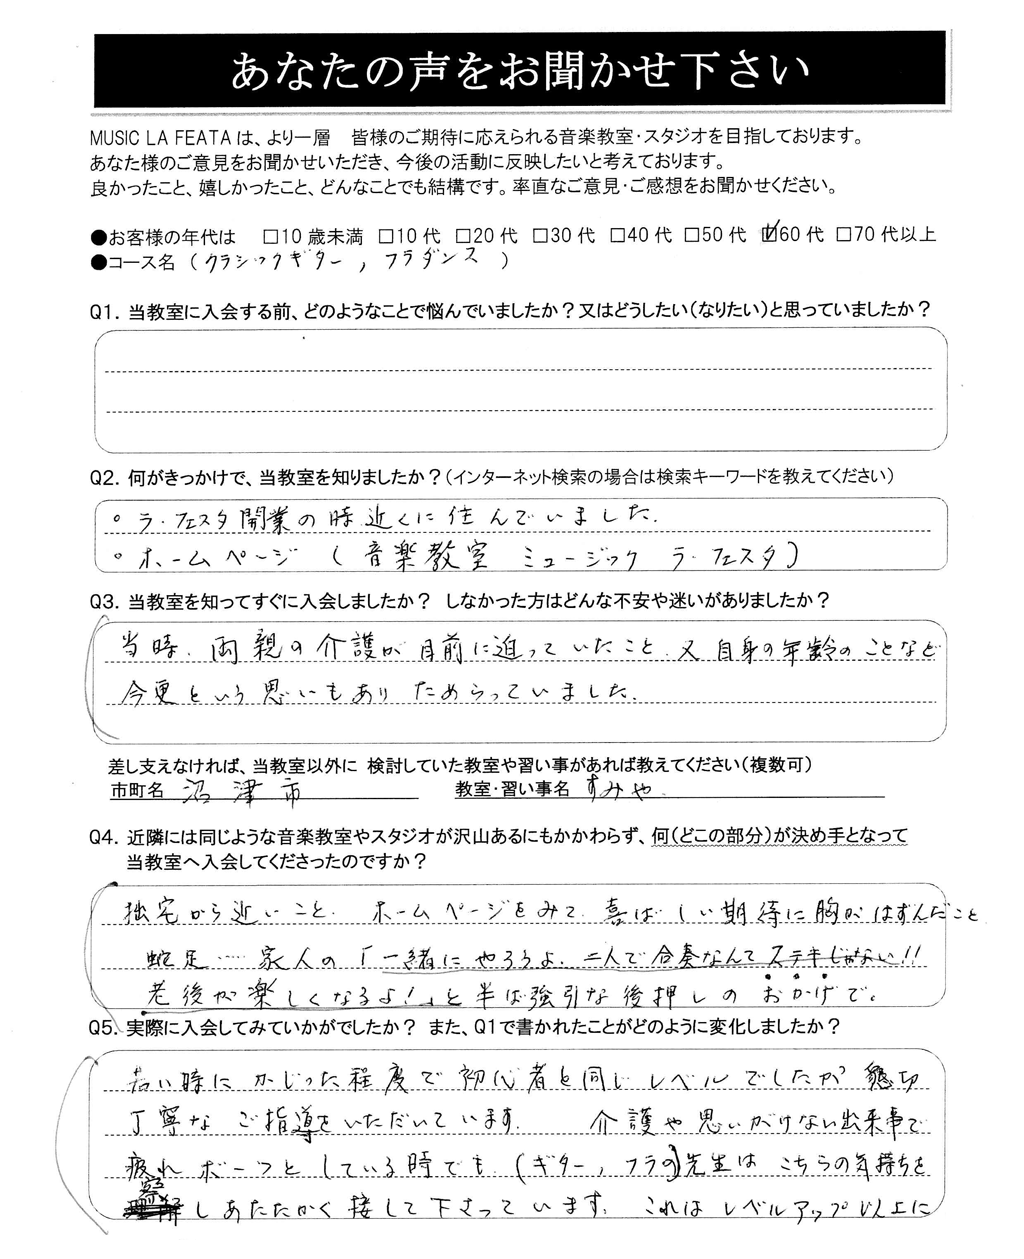 あなたの声をお聞かせ下さい
MUSIC LA FEATAは、より一層　皆様のご期待に応えられる音楽教室・スタジオを目指しております。
あなた様のご意見をお聞かせいただき、今後の活動に反映したいと考えております。
良かったこと、嬉しかったこと、どんなことでも結構です。率直なご意見・ご感想をお聞かせください。
●お客様の年代は　□10 歳未満　□10 代　□20 代　□30 代　□40 代　□50 代　☑60 代　□70 代以上
●コース名（クラシックギター，フラダンス）
Q1. 当教室に入会する前、どのようなことで悩んでいましたか？又はどうしたい（なりたい）と思っていましたか？
Q2. 何がきっかけで、当教室を知りましたか？（インターネット検索の場合は検索キーワードを教えてください）
◦ ラ・フェスタ開業の時近くに住んでいました.
◦ ホームページ　（音楽教室　ミュージック　ラ・フェスタ）
Q3. 当教室を知ってすぐに入会しましたか？　しなかった方はどんな不安や迷いがありましたか？
当時、両親の介護が目前に迫っていたこと、又自身の年齢のことなど
今更という思いもあり ためらっていました.
差し支えなければ、当教室以外に 検討していた教室や習い事があれば教えてください（複数可）
市町名　沼津市　教室・習い事名　すみや.
Q4. 近隣には同じような音楽教室やスタジオが沢山あるにもかかわらず、何（どこの部分）が決め手となって
当教室へ入会してくださったのですか？
拙宅から近いこと、ホームページをみて、喜ばしい期待に胸がはずんだこと
蛇足……家人の「一緒にやろうよ、二人で合奏なんてステキじゃない!!
老後が楽しくなるよ!」と半ば強引な後押しのおかげで。
Q5. 実際に入会してみていかがでしたか？ また、Q1で書かれたことがどのように変化しましたか？
若い時にかじった程度で初心者と同じレベルでしたが懇切
丁寧なご指導をいただいています.　介護や思いがけない出来事で
疲れボーッとしている時でも、（ギター，フラの）先生はこちらの気持ちを
察しあたたかく接して下さっています, これはレベルアップ以上に